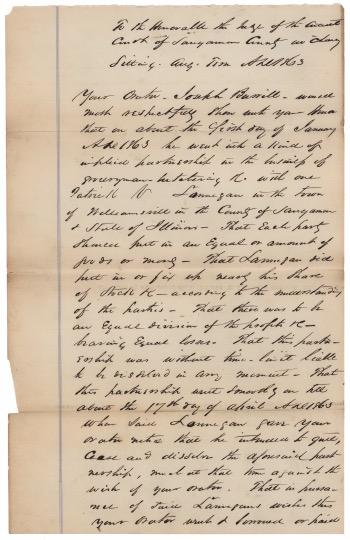 To the Honorable the Judge of the Circuit
Court of Sangamon County in Chancery
Sitting. Aug. Term A.D. 1863
Your Orator - Joseph Burrill - would
most respectfully show unto your Honor
that on about the first day of January
A.D. 1863 he went into a kind of
implied partnership in the business of
groceryman &c. with one
Patrick N Lannegan in the town
of Williamsvill in the County of Sangamon
& State of Illinois - That Each party
should put in an Equal amount of
goods or money - That Lannegan did
put in or fix up nearly his share
of Stock &c - according to the understanding
of the parties - That there was to be
an Equal division of the profits &c -
bearing Equal losses. That this partn-
ership was without time - but liable
to be dissolved in any moment - That
this partnership went smoothly on till
about the 17th day of April A.D. 1863
When Said Lannegan gave your
orator notice that he intended to quit,
Cease and dissolve the aforesaid part-
nership, much at that time against the
wish of your orator. That in pursu-
ance of said Lannegans wishes this
your Orator went & borrowed or paid